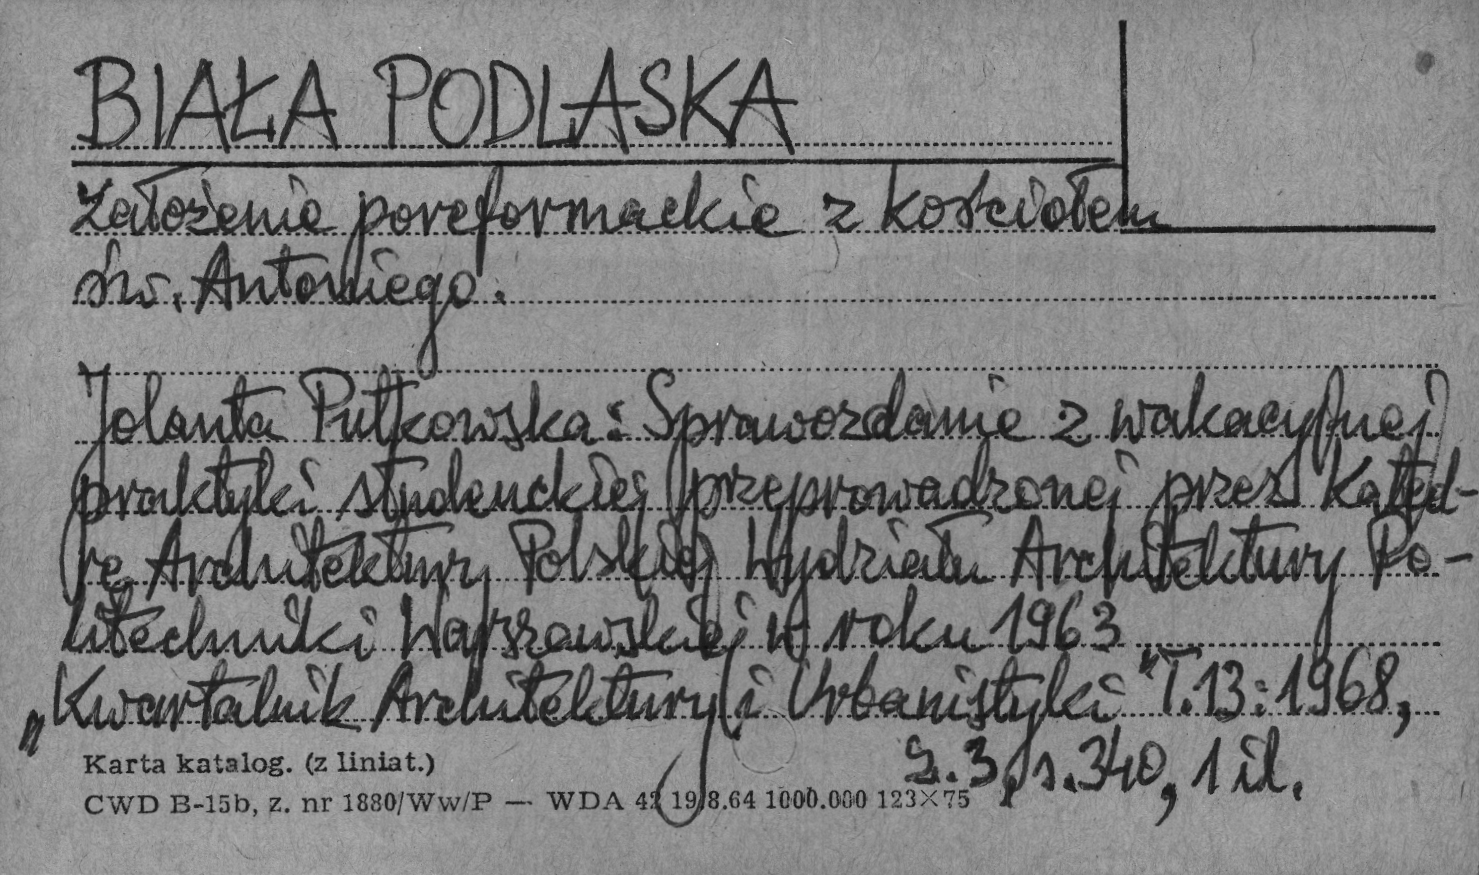 BIAŁA PODLASKA
założenie poreformackie z kościołem
św. Antoniego.
Jolanta Putkowska: Sprawozdanie z wakacyjnej
praktyki studenckiej przeprowadzonej przez Kated-
rę Architektury Polskiej Wydziału Architektury Po-
litechniki Warszawskiej w roku 1963
„Kwartalnik Architektury i Urbanistyki" T.13:1968,
z.3, s.340, 1 il.
Karta katalog. (z liniat.)
CWD B-15b, z. nr 1880/Ww/P — WDA 42 19/8.64 1000.000 123×75